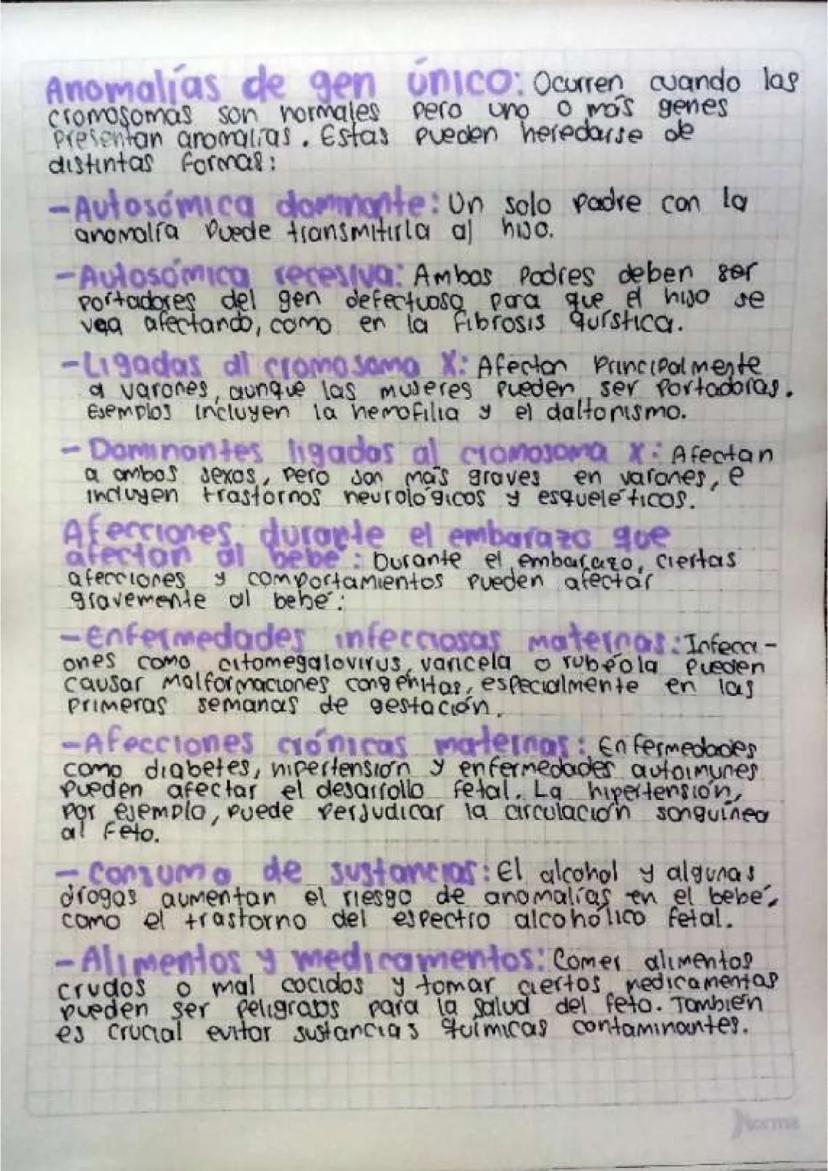 Anomalías de gen único: Ocurren cuando los
cromosomas son normales pero uno o más genes
presentan anomalías. Estas pueden heredarse de
distintas formas:
-Autosómica dominante: Un solo padre con la
anomalía puede transmitirla al hijo.
-Autosómica recesiva: Ambos padres deben ser
portadores del gen defectuoso para que el hijo se
vea afectando, como en la fibrosis quística.
-Ligadas al cromosoma X: Afectan principalmente
a varones, aunque las mujeres pueden ser portadoras.
Ejemplos incluyen la hemofilia y el daltonismo.
- Dominantes ligadas al cromosoma X: Afectan
a ambos sexos, pero son más graves en varones, e
incluyen trastornos neurológicos y esqueléticos.
Afecciones durante el embarazo que
afectan al bebé: Durante el embarazo, ciertas
afecciones y comportamientos pueden afectar
gravemente al bebé:
-Enfermedades infecciosas maternas: Infecci-
ones como citomegalovirus, varicela o rubéola pueden
causar malformaciones congénitas, especialmente en las
primeras semanas de gestación.
-Afecciones crónicas maternas: Enfermedades
como diabetes, hipertensión y enfermedades autoimunes
pueden afectar el desarrollo fetal. La hipertensión,
por ejemplo, puede perjudicar la circulación sanguínea
al feto.
- Consumo de sustancias: El alcohol y algunas
drogas aumentan el riesgo de anomalías en el bebé,
como el trastorno del espectro alcohólico fetal.
-Alimentos y medicamentos: Comer alimentos
crudos o mal cocidos y tomar ciertos medicamentos
pueden ser peligrosos para la salud del feto. También
es crucial evitar sustancias químicas contaminantes.
Norma